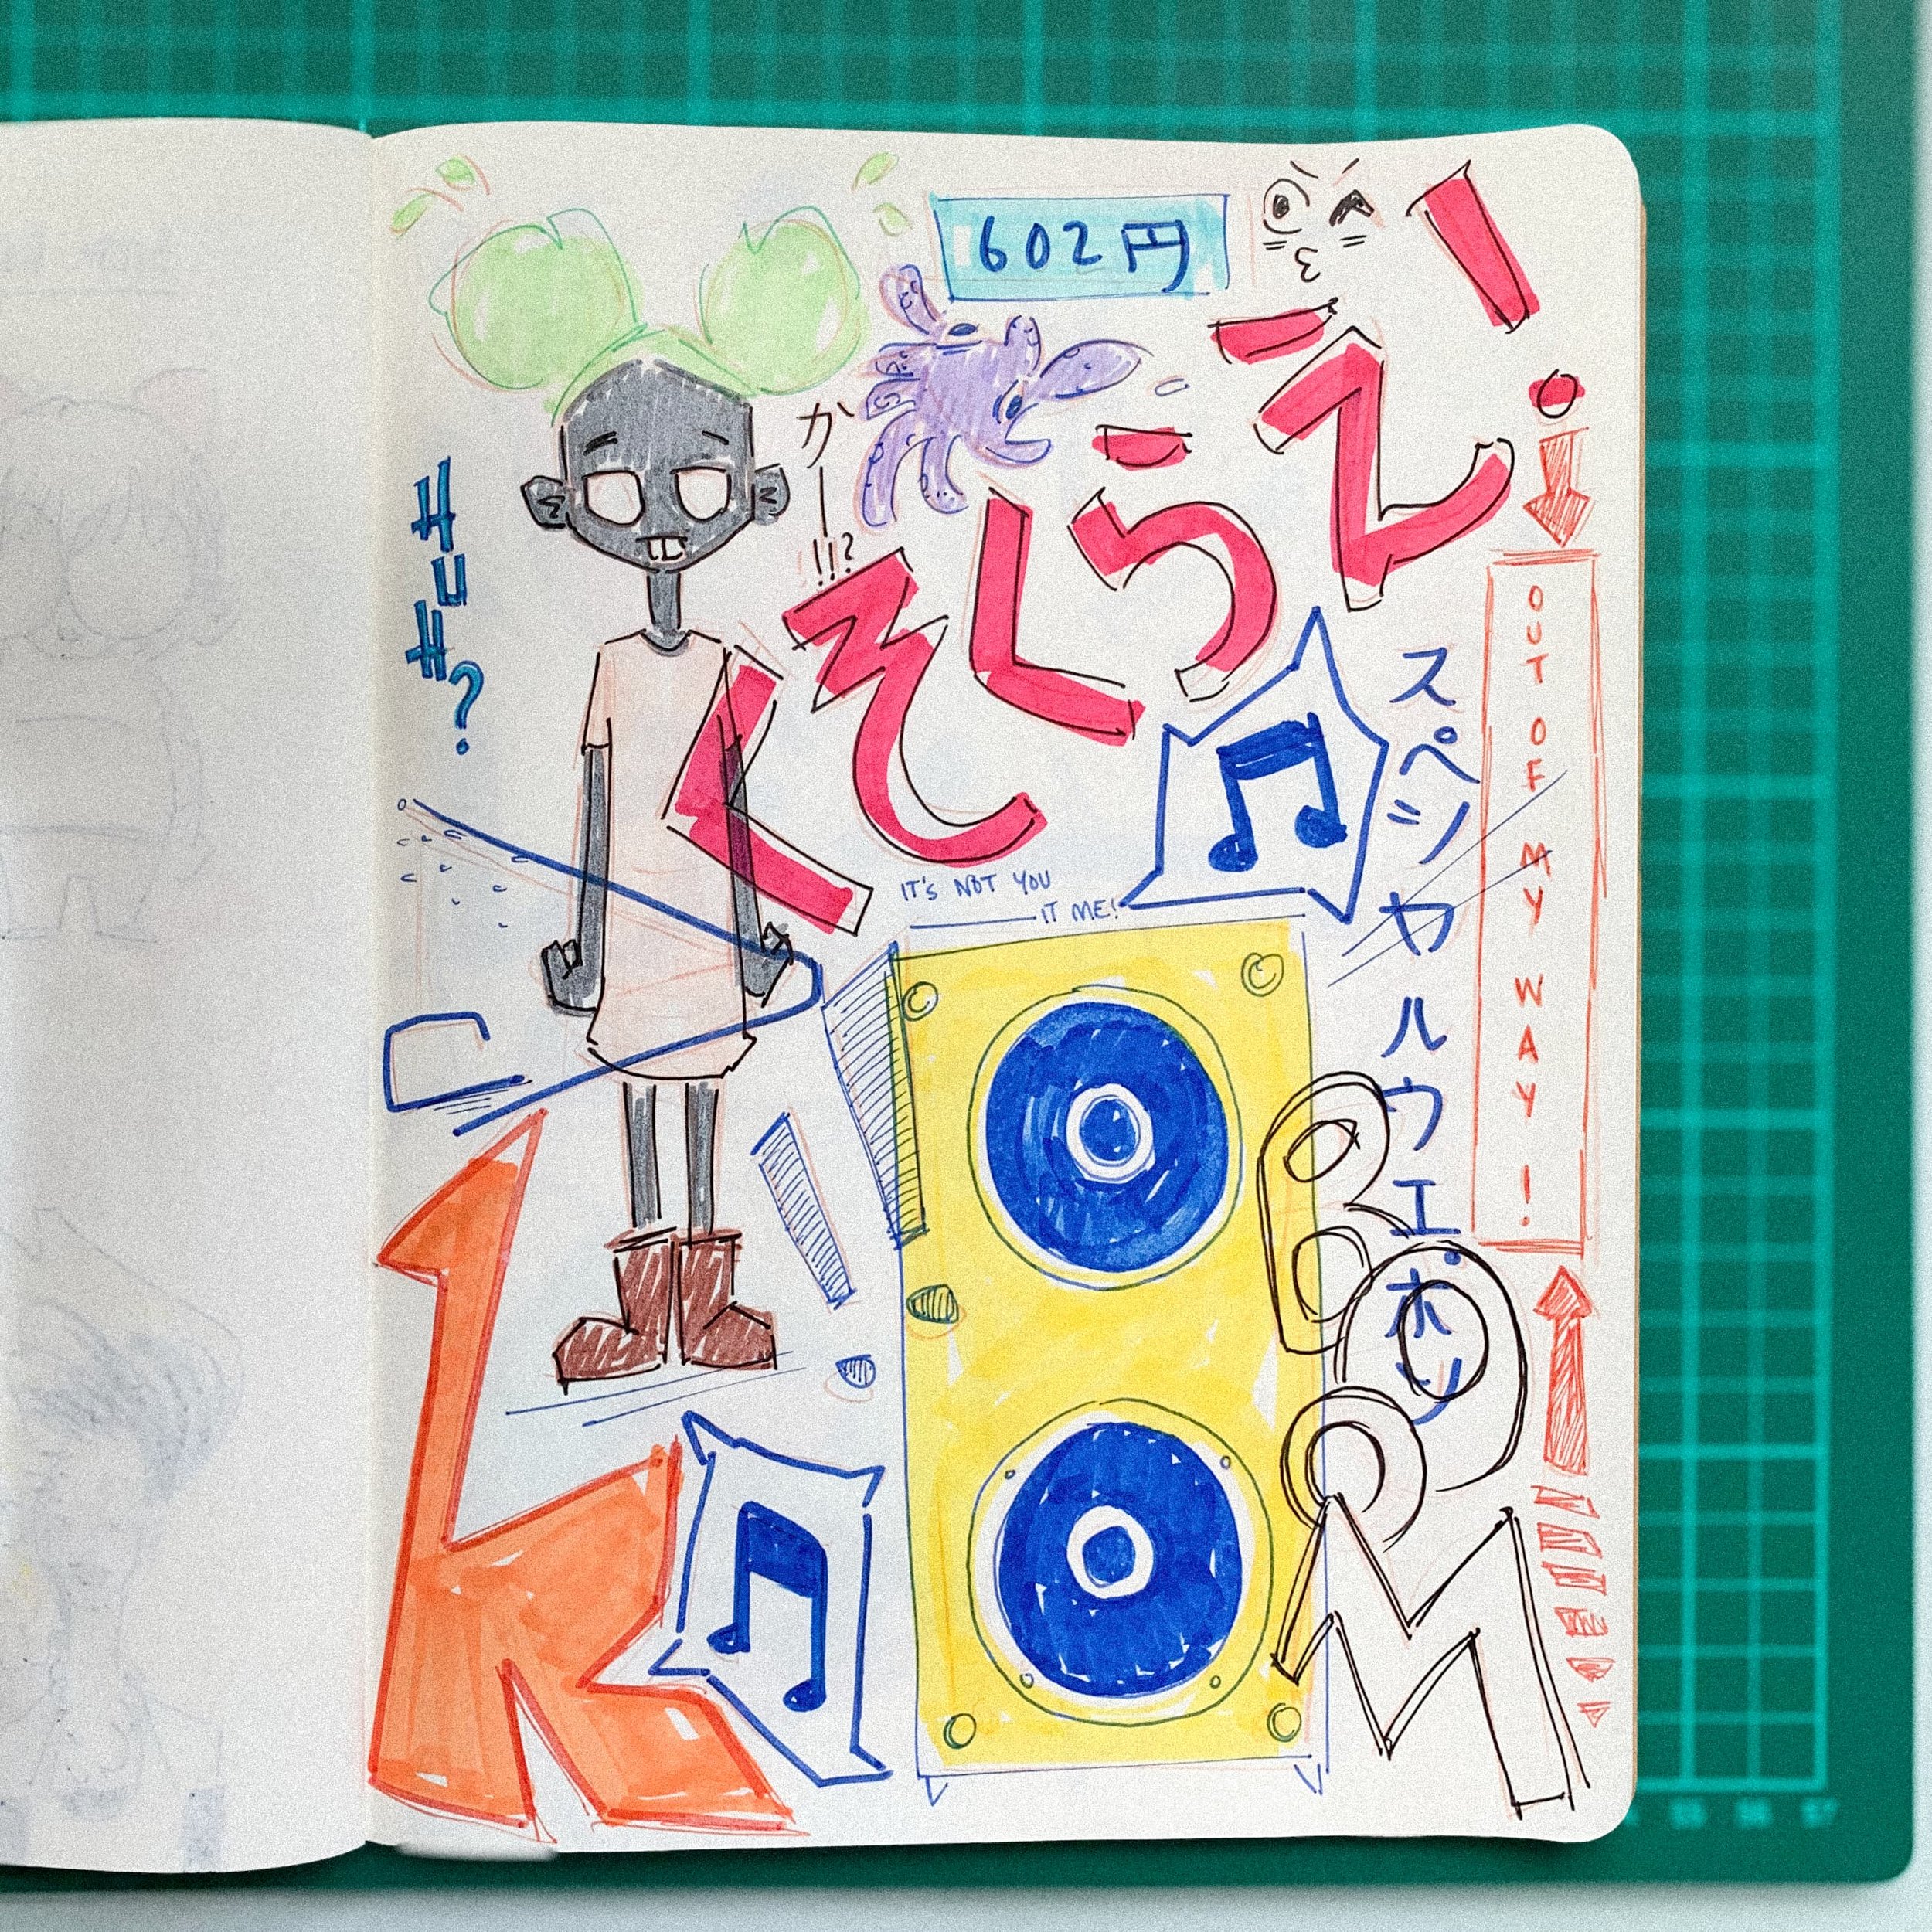 602円
カー!!?
HUH?
くそくらえ!
OUT OF MY WAY!
スペシャルウエポン
IT'S NOT YOU
IT ME!
BOOM
k